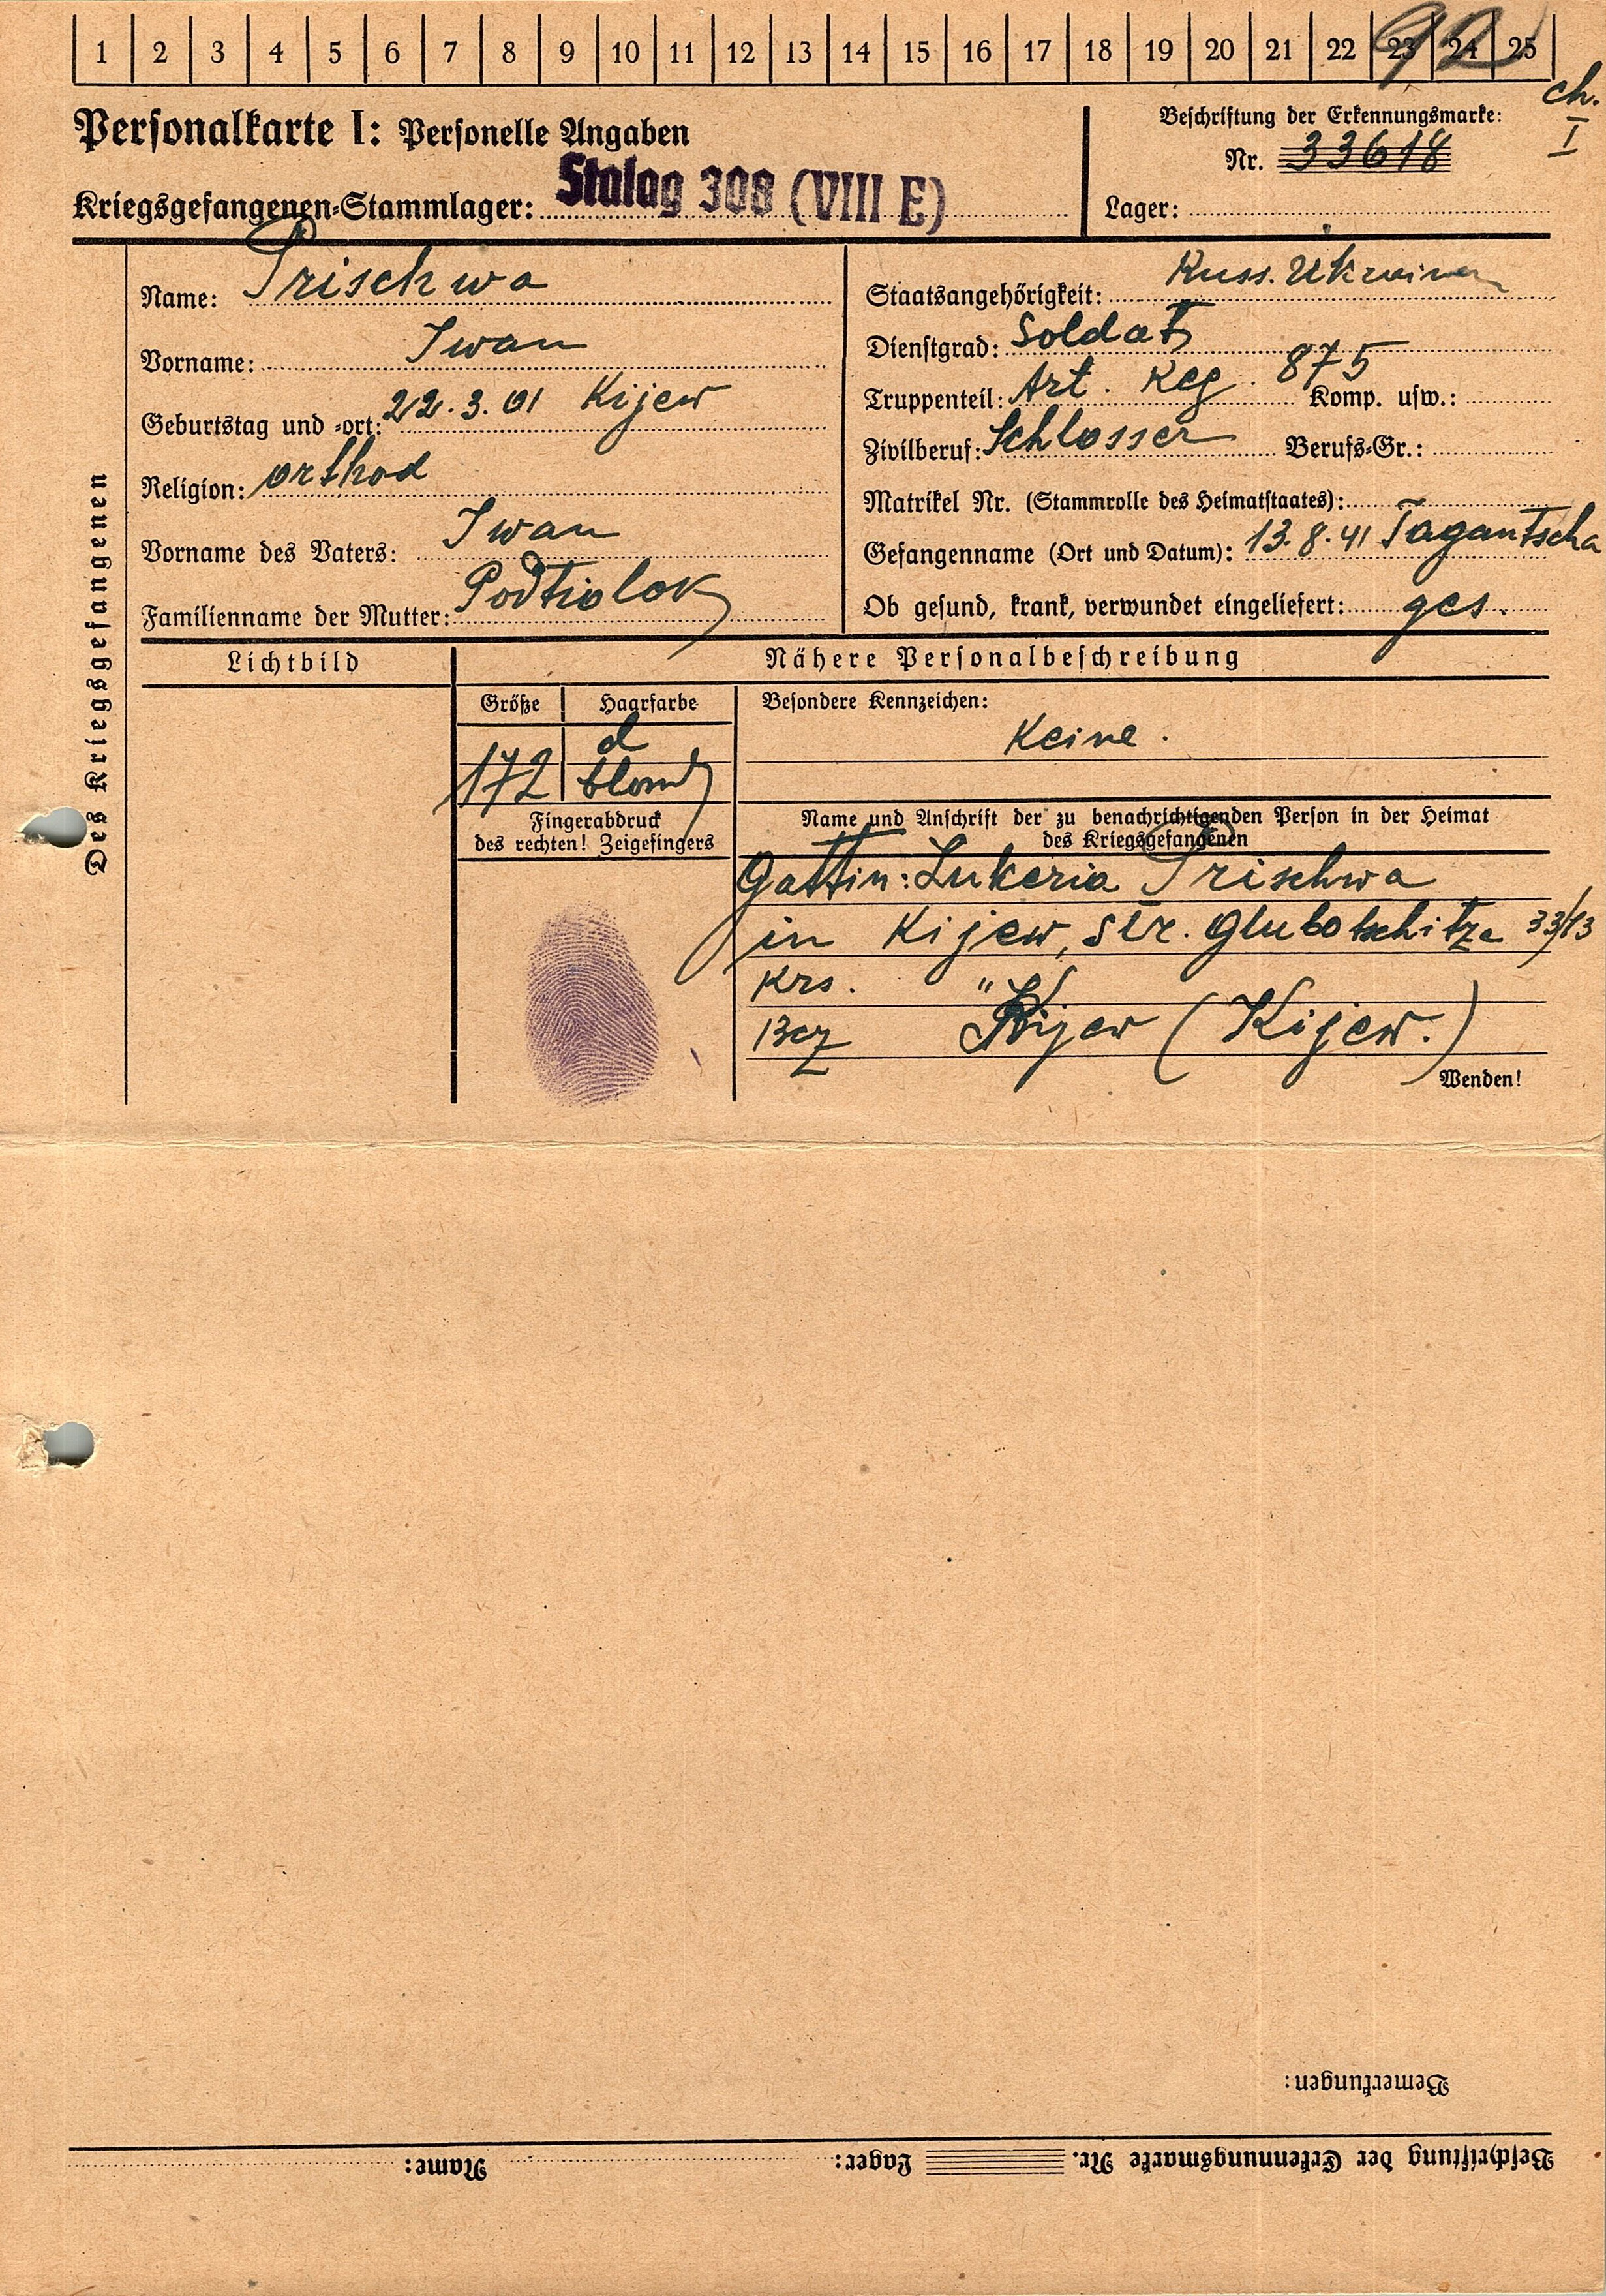 1 2 3 4 5 6 7 8 9 10 11 12 13 14 15 16 17 18 19 20 21 22 23 24 25
92
ch.
I
Personalkarte I: Personelle Angaben
Kriegsgefangenen-Stammlager: Stalag 308 (VIII E)
Beschriftung der Erkennungsmarke:
Nr. 33618
Lager:
Des Kriegsgefangenen
Name: Prischwa
Vorname: Iwan
Geburtstag und -ort: 22.3.01 Kijew
Religion: orthod
Vorname des Vaters: Iwan
Familienname der Mutter: Podtiolok
Staatsangehörigkeit: Russ. Ukrainer
Dienstgrad: Soldat
Truppenteil: Art. Reg. 875 Komp. usw.:
Zivilberuf: Schlosser Berufs-Gr.:
Matrikel Nr. (Stammrolle des Heimatstaates):
Gefangenname (Ort und Datum): 13.8.41 Tagantscha
Ob gesund, krank, verwundet eingeliefert: ges.
Lichtbild
Nähere Personalbeschreibung
Größe Haarfarbe
172 d
blond
Besondere Kennzeichen:
Keine.
Fingerabdruck
des rechten! Zeigefingers
Name und Anschrift der zu benachrichtigenden Person in der Heimat
des Kriegsgefangenen
Gattin: Lukeria Prischwa
in Kijew, Str. Glubotschitza 33/13
Krs. " K
Bez Kijew (Kijew.)
Wenden!
Bemerkungen:
Beschriftung der Erkennungsmarke Nr. Lager: Name: